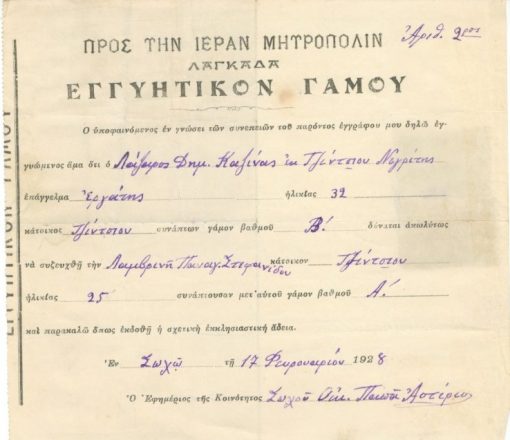 ΠΡΟΣ ΤΗΝ ΙΕΡΑΝ ΜΗΤΡΟΠΟΛΙΝ
Ἀριθ. 2ρος
ΛΑΓΚΑΔΑ
ΕΓΓΥΗΤΙΚΟΝ ΓΑΜΟΥ
Ὁ ὑποφαινόμενος ἐν γνώσει τῶν συνεπειῶν τοῦ παρόντος ἐγγράφου μου δηλῶ ἐγ-
γυώμενος ἅμα ὅτι ὁ Λάζαρος Δημ. Καζίνας ἐκ Τζέντσιου Νιγρίτης
ἐπάγγελμα Ἐργάτης ἡλικίας 32
κάτοικος Τζέντσιου συνάπτων γάμον βαθμοῦ Β! δύναται ἀπωλύτως
νὰ συζευχθῇ τὴν Λαμβρινὴ Παναγ. Στεφανίδου κάτοικον Τζέντσιου
ἡλικίας 25 συνάπτουσαν μετ' αὐτοῦ γάμον βαθμοῦ Α!
καὶ παρακαλῶ ὅπως ἐκδοθῇ ἡ σχετικὴ ἐκκλησιαστικὴ ἄδεια.
Ἐν Σωχῷ τῇ 17 Φεβρουαρίου 1928
Ὁ Ἐφημέριος τῆς Κοινότητος Σωχοῦ Οἰκ. Παπᾶ Ἀστέριος
ΕΓΓΥΗΤΙΚΟΝ ΓΑΜΟΥ